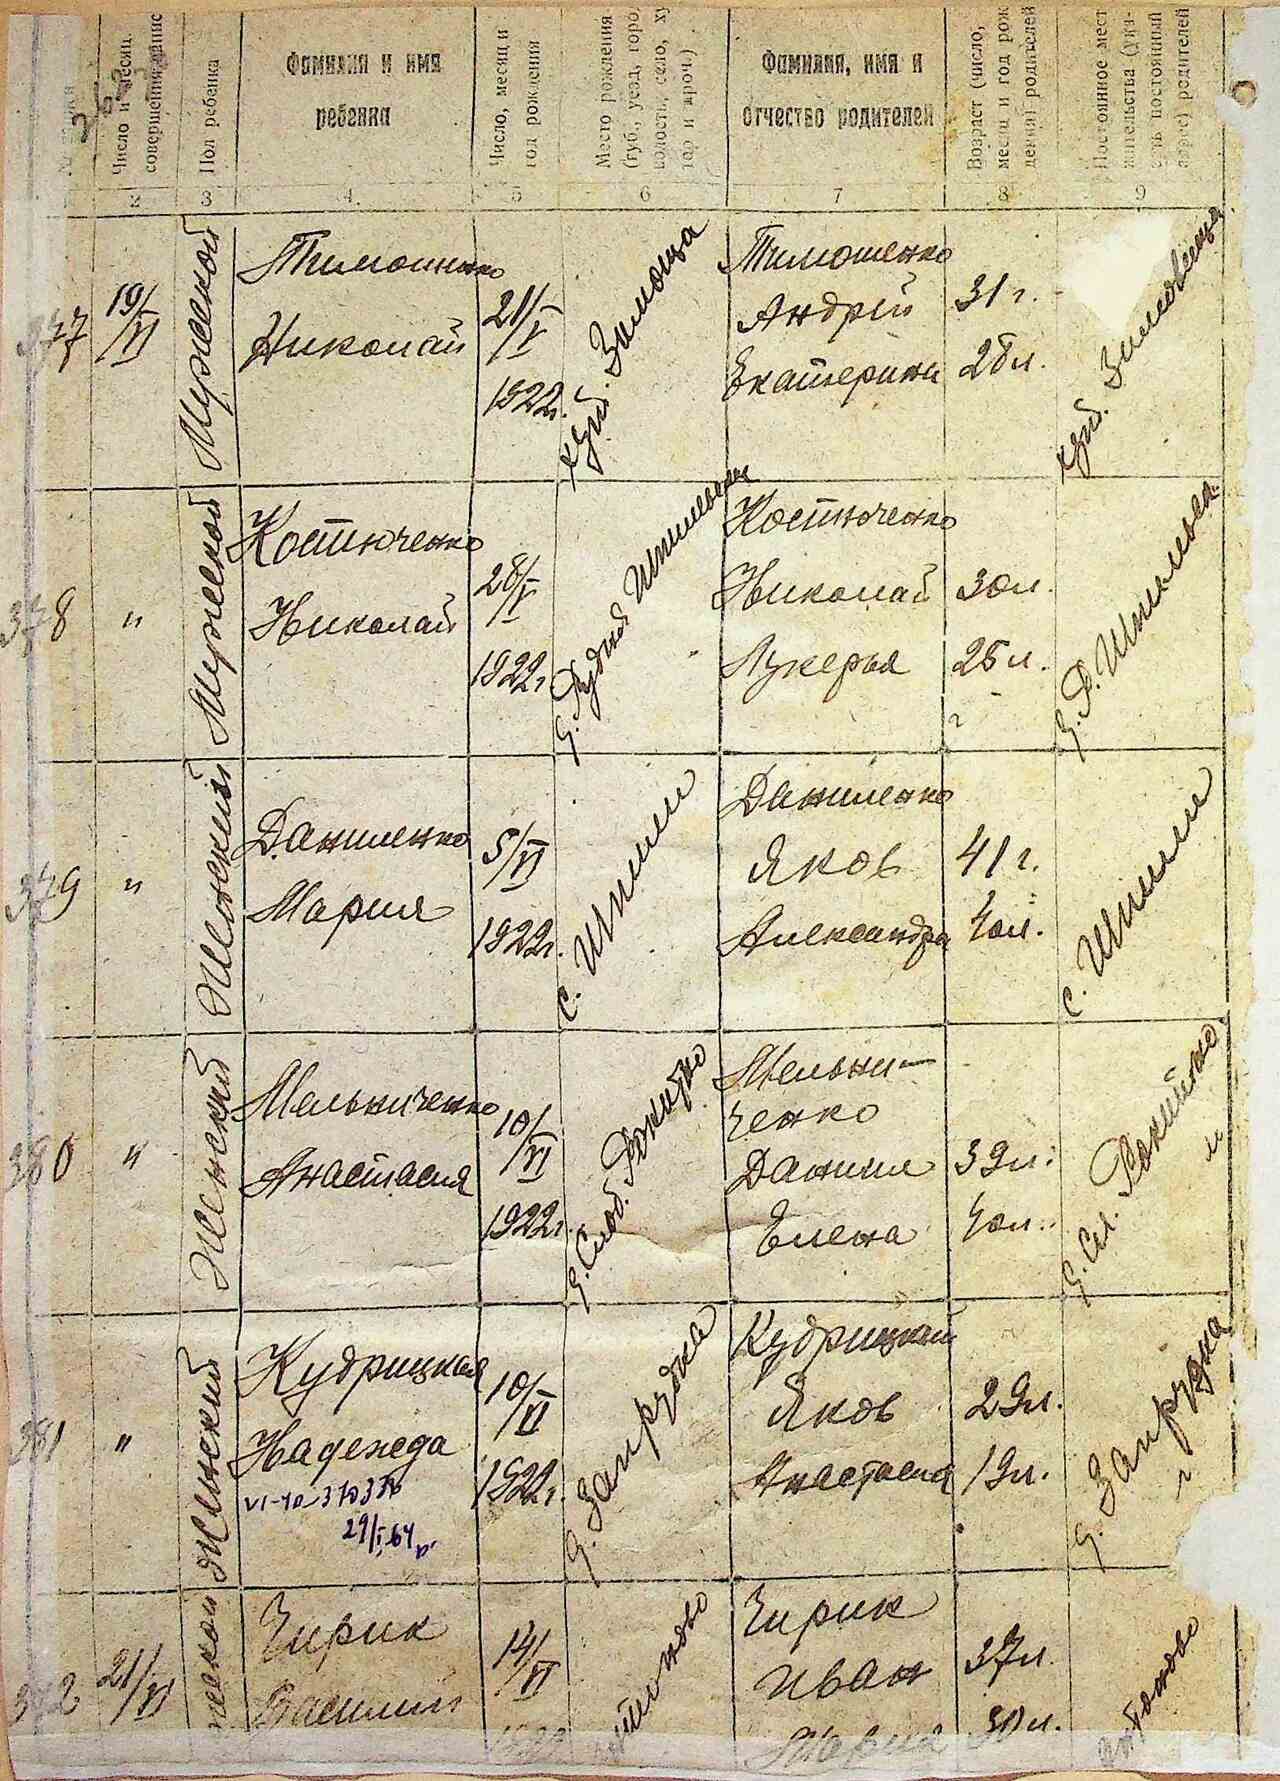 Число и месяц
совершения запис
Пол ребенка
Фамилия и имя
ребенка
Число, месяц и
год рождения
Место рождения
(губ., уезд, горо,
волость, село, ху
тор и проч.)
Фамилия, имя и
отчество родителей
Возраст (число,
месяц и год рож
дения) родителей
Постоянное мест
жительства (ука-
зать постоянный
адрес) родителей
2
3
4.
5
6
7
8
9
377
19/VI
Мужской
Тимошенко
Николай
21/V
1922г.
Тимошенко
Андрей
Екатерина
31 г.
28л.
378
"
Мужской
Костюченко
Николай
28/V
1922г
Костюченко
Николай
Лукерья
30л.
25л.
379
"
Женский
Даниленко
Мария
5/VI
1922г.
с. Шпили
Даниленко
Яков
Александра
41 г.
40л.
с. Шпили
380
"
Женский
Мельниченко
Анастасия
10/VI
1922г.
Мельни-
ченко
Данил
Елена
39л.
40л.
381
"
Женский
Кудрицкая
Надежда
29/I 64
10/VI
1922г.
д. Запрудка
Кудрицкий
Яков
Анастасия
29л.
19л.
д. Запрудка
382
21/VI
Чирик
Василий
14/VI
Чирик
Иван
Мария
37л.
30л.